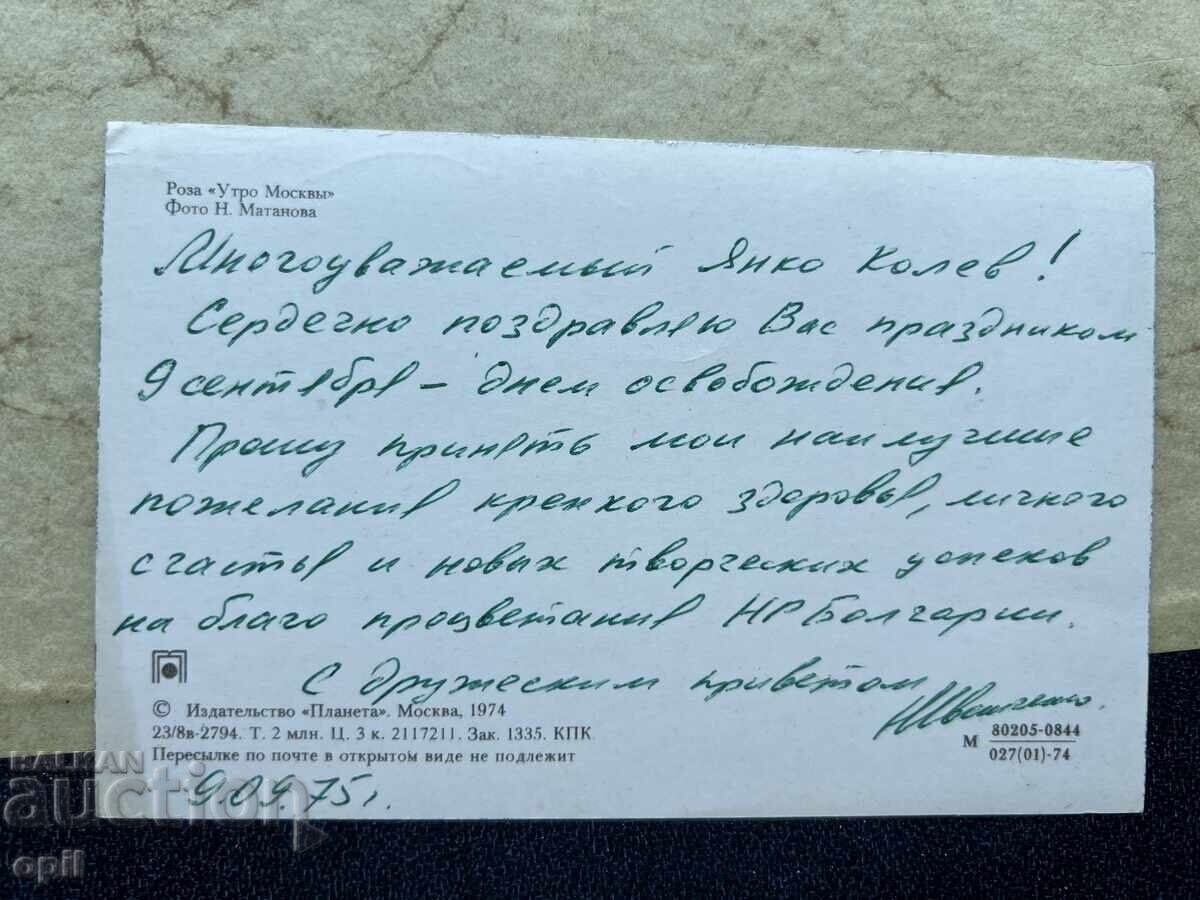 Роза «Утро Москвы»
Фото Н. Матанова
Многоуважаемый Янко Колев!
Сердечно поздравляю Вас праздником
9 сентября – днем освобождения.
Прошу принять мои наилучшие
пожелания крепкого здоровья, личного
счастья и новых творческих успехов
на благо процветания НР Болгарии.
С дружеским приветом
© Издательство «Планета». Москва, 1974
23/8в-2794. Т. 2 млн. Ц. 3 к. 2117211. Зак. 1335. КПК
Пересылке по почте в открытом виде не подлежит
М 80205-0844
027(01)-74
9.09.75 г.
BALKAN
auction
opil